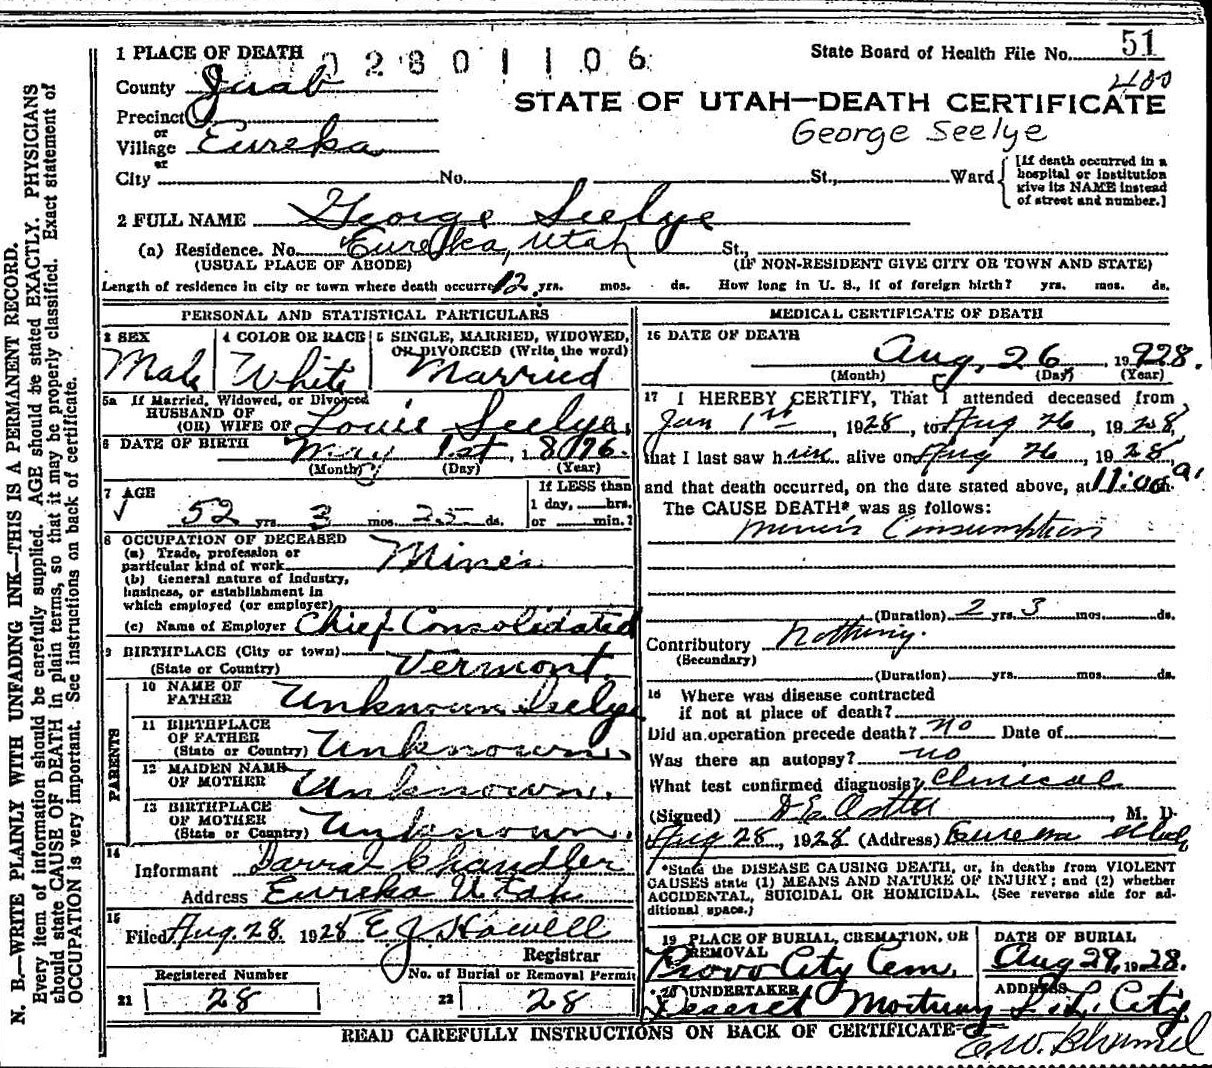 1 PLACE OF DEATH 02801106 State Board of Health File No. 51
County Juab 400
STATE OF UTAH—DEATH CERTIFICATE
Precinct
George Seelye
or
Village Eureka
or
City No. St., Ward
[If death occurred in a
hospital or institution
give its NAME instead
of street and number.]
2 FULL NAME George Seelye
(a) Residence. No. Eureka, Utah St.,
(USUAL PLACE OF ABODE) (IF NON-RESIDENT GIVE CITY OR TOWN AND STATE)
Length of residence in city or town where death occurred 12 yrs. mos. ds. How long in U. S., if of foreign birth? yrs. mos. ds.
PERSONAL AND STATISTICAL PARTICULARS
3 SEX 4 COLOR OR RACE 5 SINGLE, MARRIED, WIDOWED,
OR DIVORCED (Write the word)
Male White Married
5a If Married, Widowed, or Divorced
HUSBAND OF
(OR) WIFE OF Louie Seelye.
6 DATE OF BIRTH May 1st, 1876.
(Month) (Day) (Year)
7 AGE If LESS than
1 day, hrs.
52 yrs. 3 mos. 25 ds. or min.?
8 OCCUPATION OF DECEASED
(a) Trade, profession or
particular kind of work Miner
(b) General nature of industry,
business, or establishment in
which employed (or employer)
(c) Name of Employer Chief Consolidated
9 BIRTHPLACE (City or town)
(State or Country) Vermont.
PARENTS
10 NAME OF
FATHER Unknown Seelye
11 BIRTHPLACE
OF FATHER
(State or Country) Unknown.
12 MAIDEN NAME
OF MOTHER Unknown.
13 BIRTHPLACE
OF MOTHER
(State or Country) Unknown.
14
Informant Darral Chandler
Address Eureka Utah
15
Filed Aug. 28. 1928 E J Howell
Registrar
Registered Number No. of Burial or Removal Permit
21 28 22 28
MEDICAL CERTIFICATE OF DEATH
16 DATE OF DEATH
Aug, 26, 1928.
(Month) (Day) (Year)
17 I HEREBY CERTIFY, That I attended deceased from
Jan 1st, 1928, to Aug 26, 1928,
that I last saw him alive on Aug 26, 1928,
and that death occurred, on the date stated above, at 11:00 a.m.
The CAUSE DEATH* was as follows:
Miners Consumption
(Duration) 2 yrs. 3 mos. ds.
Contributory Nothing.
(Secondary)
(Duration) yrs. mos. ds.
18 Where was disease contracted
if not at place of death?
Did an operation precede death? no Date of
Was there an autopsy? no
What test confirmed diagnosis? Clinical
(Signed) M. D.
Aug 28, 1928 (Address) Eureka Utah
*State the DISEASE CAUSING DEATH, or, in deaths from VIOLENT
CAUSES state (1) MEANS AND NATURE OF INJURY; and (2) whether
ACCIDENTAL, SUICIDAL OR HOMICIDAL. (See reverse side for ad-
ditional space.)
19 PLACE OF BURIAL, CREMATION, OR
REMOVAL
Provo City Cem.
DATE OF BURIAL
Aug 29, 1928.
20 UNDERTAKER ADDRESS
Deseret Mortuary S.L. City
READ CAREFULLY INSTRUCTIONS ON BACK OF CERTIFICATE
N. B.—WRITE PLAINLY WITH UNFADING INK—THIS IS A PERMANENT RECORD.
Every item of information should be carefully supplied. AGE should be stated EXACTLY. PHYSICIANS
should state CAUSE OF DEATH in plain terms, so that it may be properly classified. Exact statement of
OCCUPATION is very important. See instructions on back of certificate.